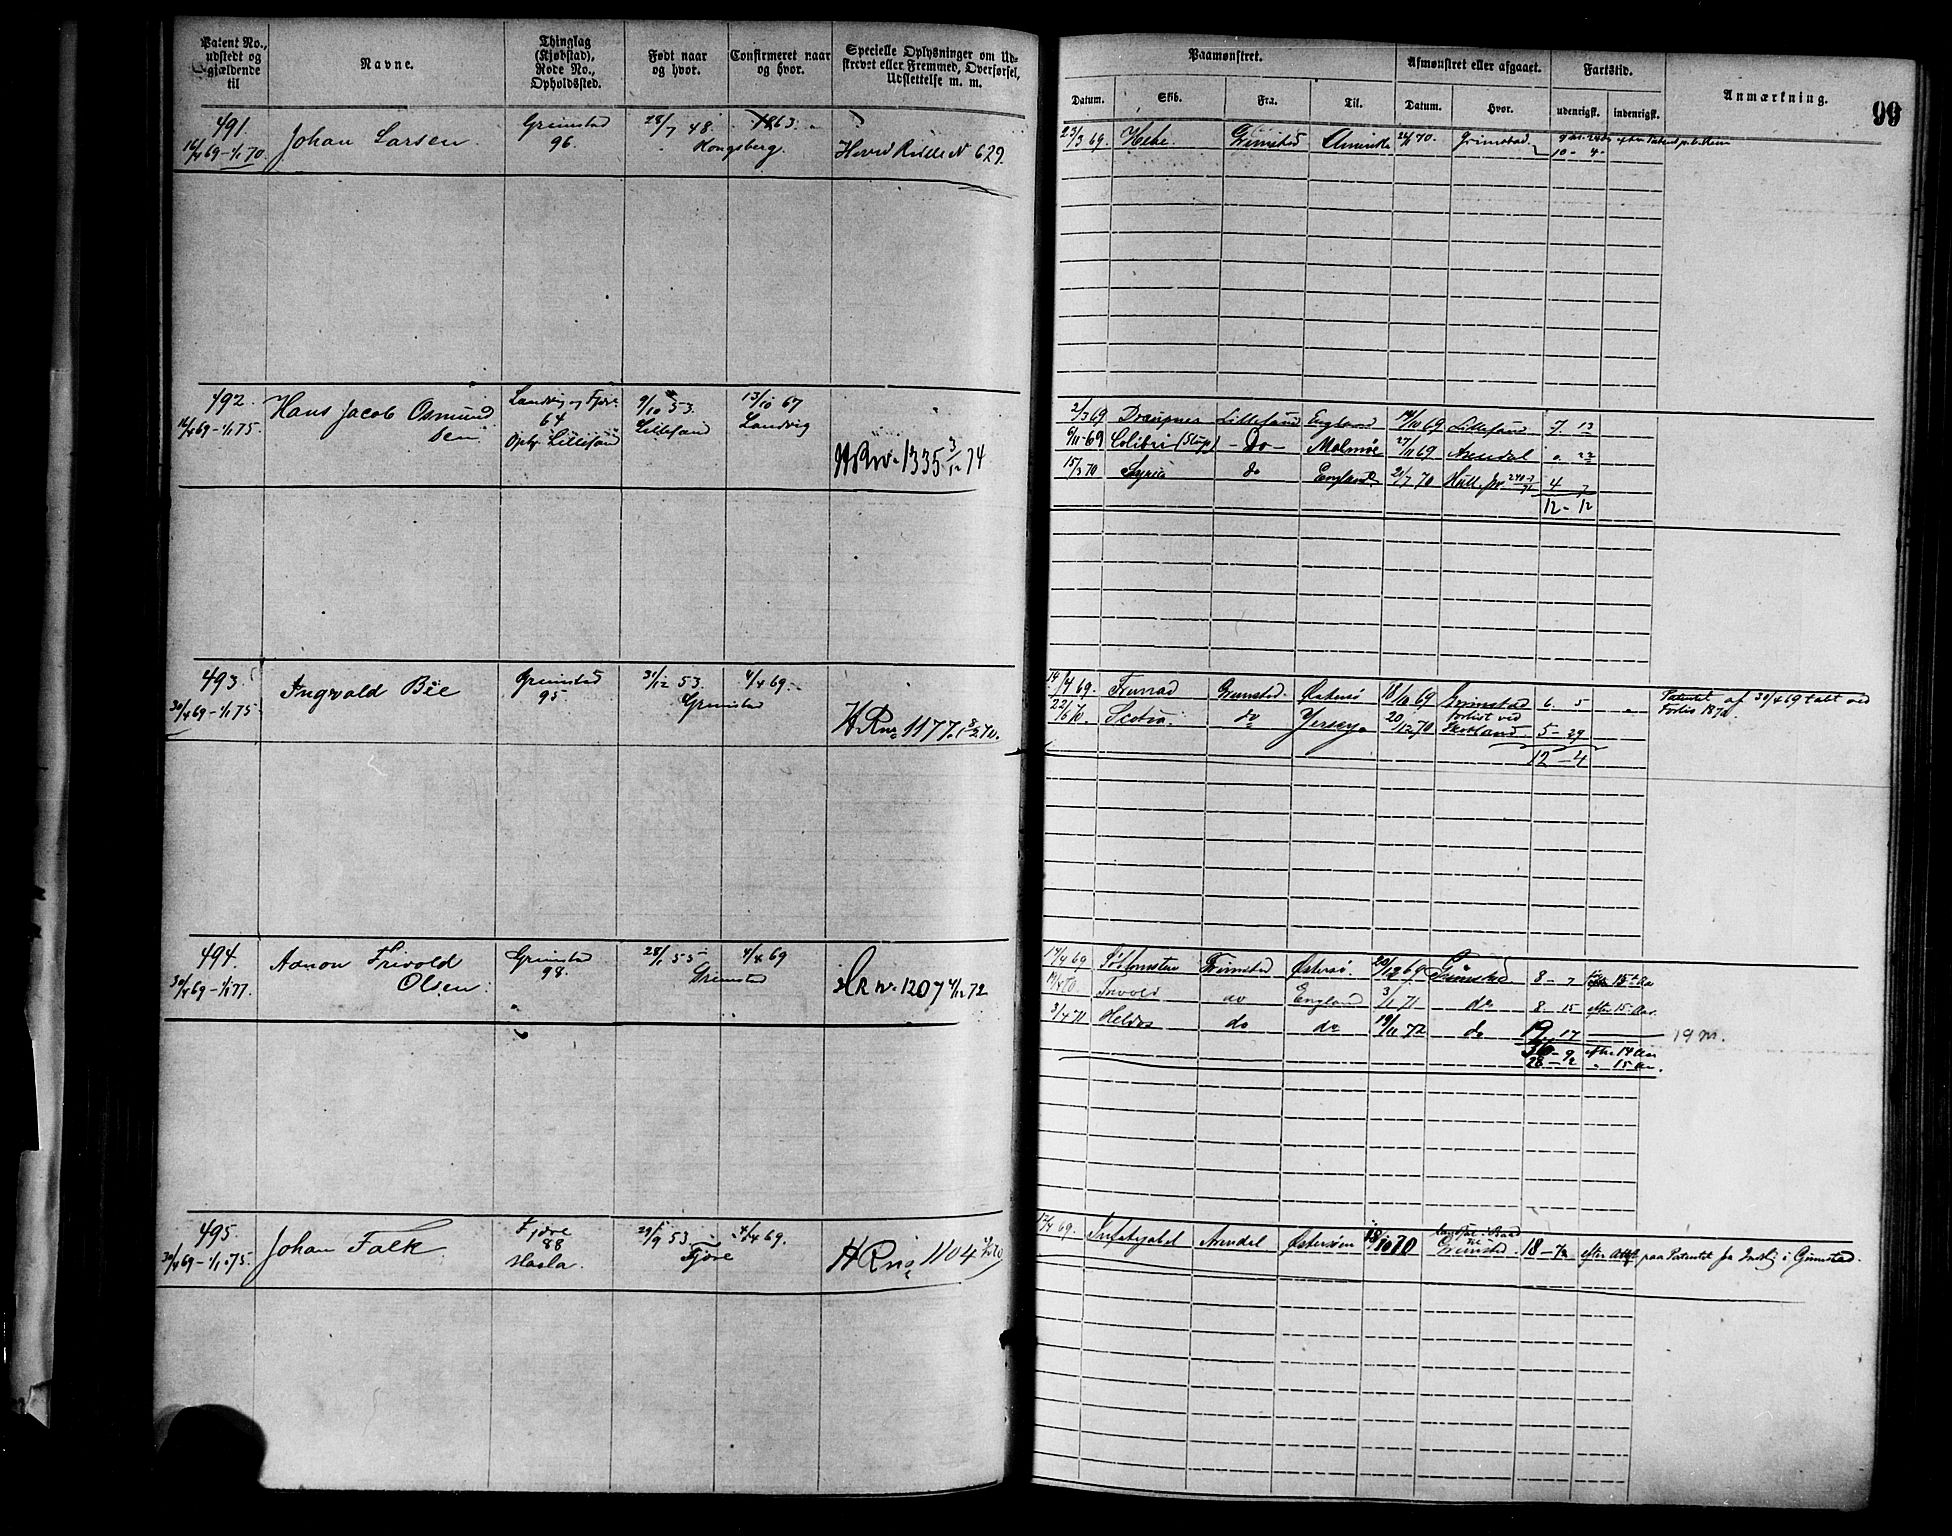 Patent No., udstedt og gjældende til
Navne.
Thinglag (Kjøbstad), Rode No., Opholdssted.
Født naar og hvor.
Confirmeret naar og hvor.
Specielle Oplysninger om Udskrevet eller Fremmed, Overførsel, Udslettelse m. m.
Paamønstret.
Afmønstret eller afgaaet.
Fartstid.
Anmærkning.
99
Datum. Skib. Fra. Til. Datum. Hvor. udenrigsk. indenrigsk.
491.
16/4 69-1/1 70.
Johan Larsen
Grimstad
96.
28/7 48.
Kongsberg.
1863.
Hoved Rulle N 629.
23/3 69. Hebe Grimstad 70. Grimstad.
10- 4-
492.
16/4 69-1/1 75.
Hans Jacob Osmund
sen
Landvig og Fjære
64
Lillesand
9/10 53.
Lillesand
13/10 67
Landvig
HRno 1335 3/12 74
2/3 69 Draupner Lillesand England 14/10 69 Lillesand 7. 13
6/11 69 Colibri (Slup) - Do - Malmøe 27/11 69 Arendal " 22
15/3 70 Syria do England 21/7 70 Hull 4 7
12 - 12
493.
30/4 69-1/1 75
Ingvald Bie
Grimstad
95
31/12 53.
Grimstad
4/4 69.
HRno 1177
14/4 69. Grimstad Østersø 18/10 69 Grimstad 6. 5 Patentet af 30/4 69 tabt ved
Forlis 1870.
22/6 70. Scotia do Yersey 20/12 70 Forlist ved
5 - 29
12 - 4
494.
30/4 69-1/1 77.
Aanon Frivold
Olsen
Grimstad
98.
28/1 55
Grimstad
4/4 69
HR No 1207 4/12 72
17/4 69 Grimstad Østersø. 20/12 69 Grimstad 8 - 7
do England 3/1 71 do 8. 15 efter 15 Aar.
3/4 71 do do 19/11 72 do 19. 17 19 m.
36 - 9 efter 14 Aar
28 - 2 " 15 Aar.
495.
30/4 69-1/1 75.
Johan Falk
Fjære
88
Hasla.
29/9 53
Fjære
4/4 69.
HRno 1104
17/4 69. Arendal Østersøen 18/10 70 Grimstad 18 - 72 efter paa Patentet fra i Grimstad.